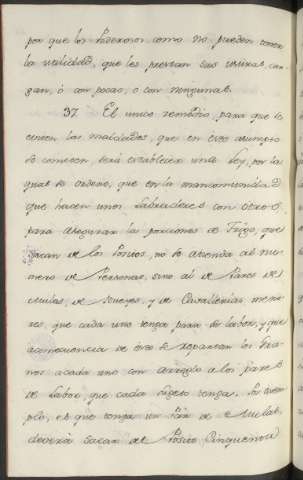 por que los Poderosos como no pueden tener
la utilidad, que les prestan sus usuras, car-
gan, ó con pocas, o con ningunas.
37. El unico remedio para que se
eviten las maldades, que en este asumpto
se cometen, será establecer una Ley, por la
qual se ordene, que en la mancomunidad
que hacen unos Labradores con otros
para asegurar las porciones de Trigo, que
sacan de los Positos, no se atienda al nu-
mero de Personas, sino al de Pares de
Mulas, de Bueyes, y de Cavallerias meno-
res, que cada uno tenga para su labor, y que
a consecuencia de esto se repartan los Gra-
nos a cada uno con arreglo a los pares
de Labor, que cada sugeto tenga. Por exem-
plo, el que tenga un Par de Mulas,
deverá sacar del Posito Cinquenta